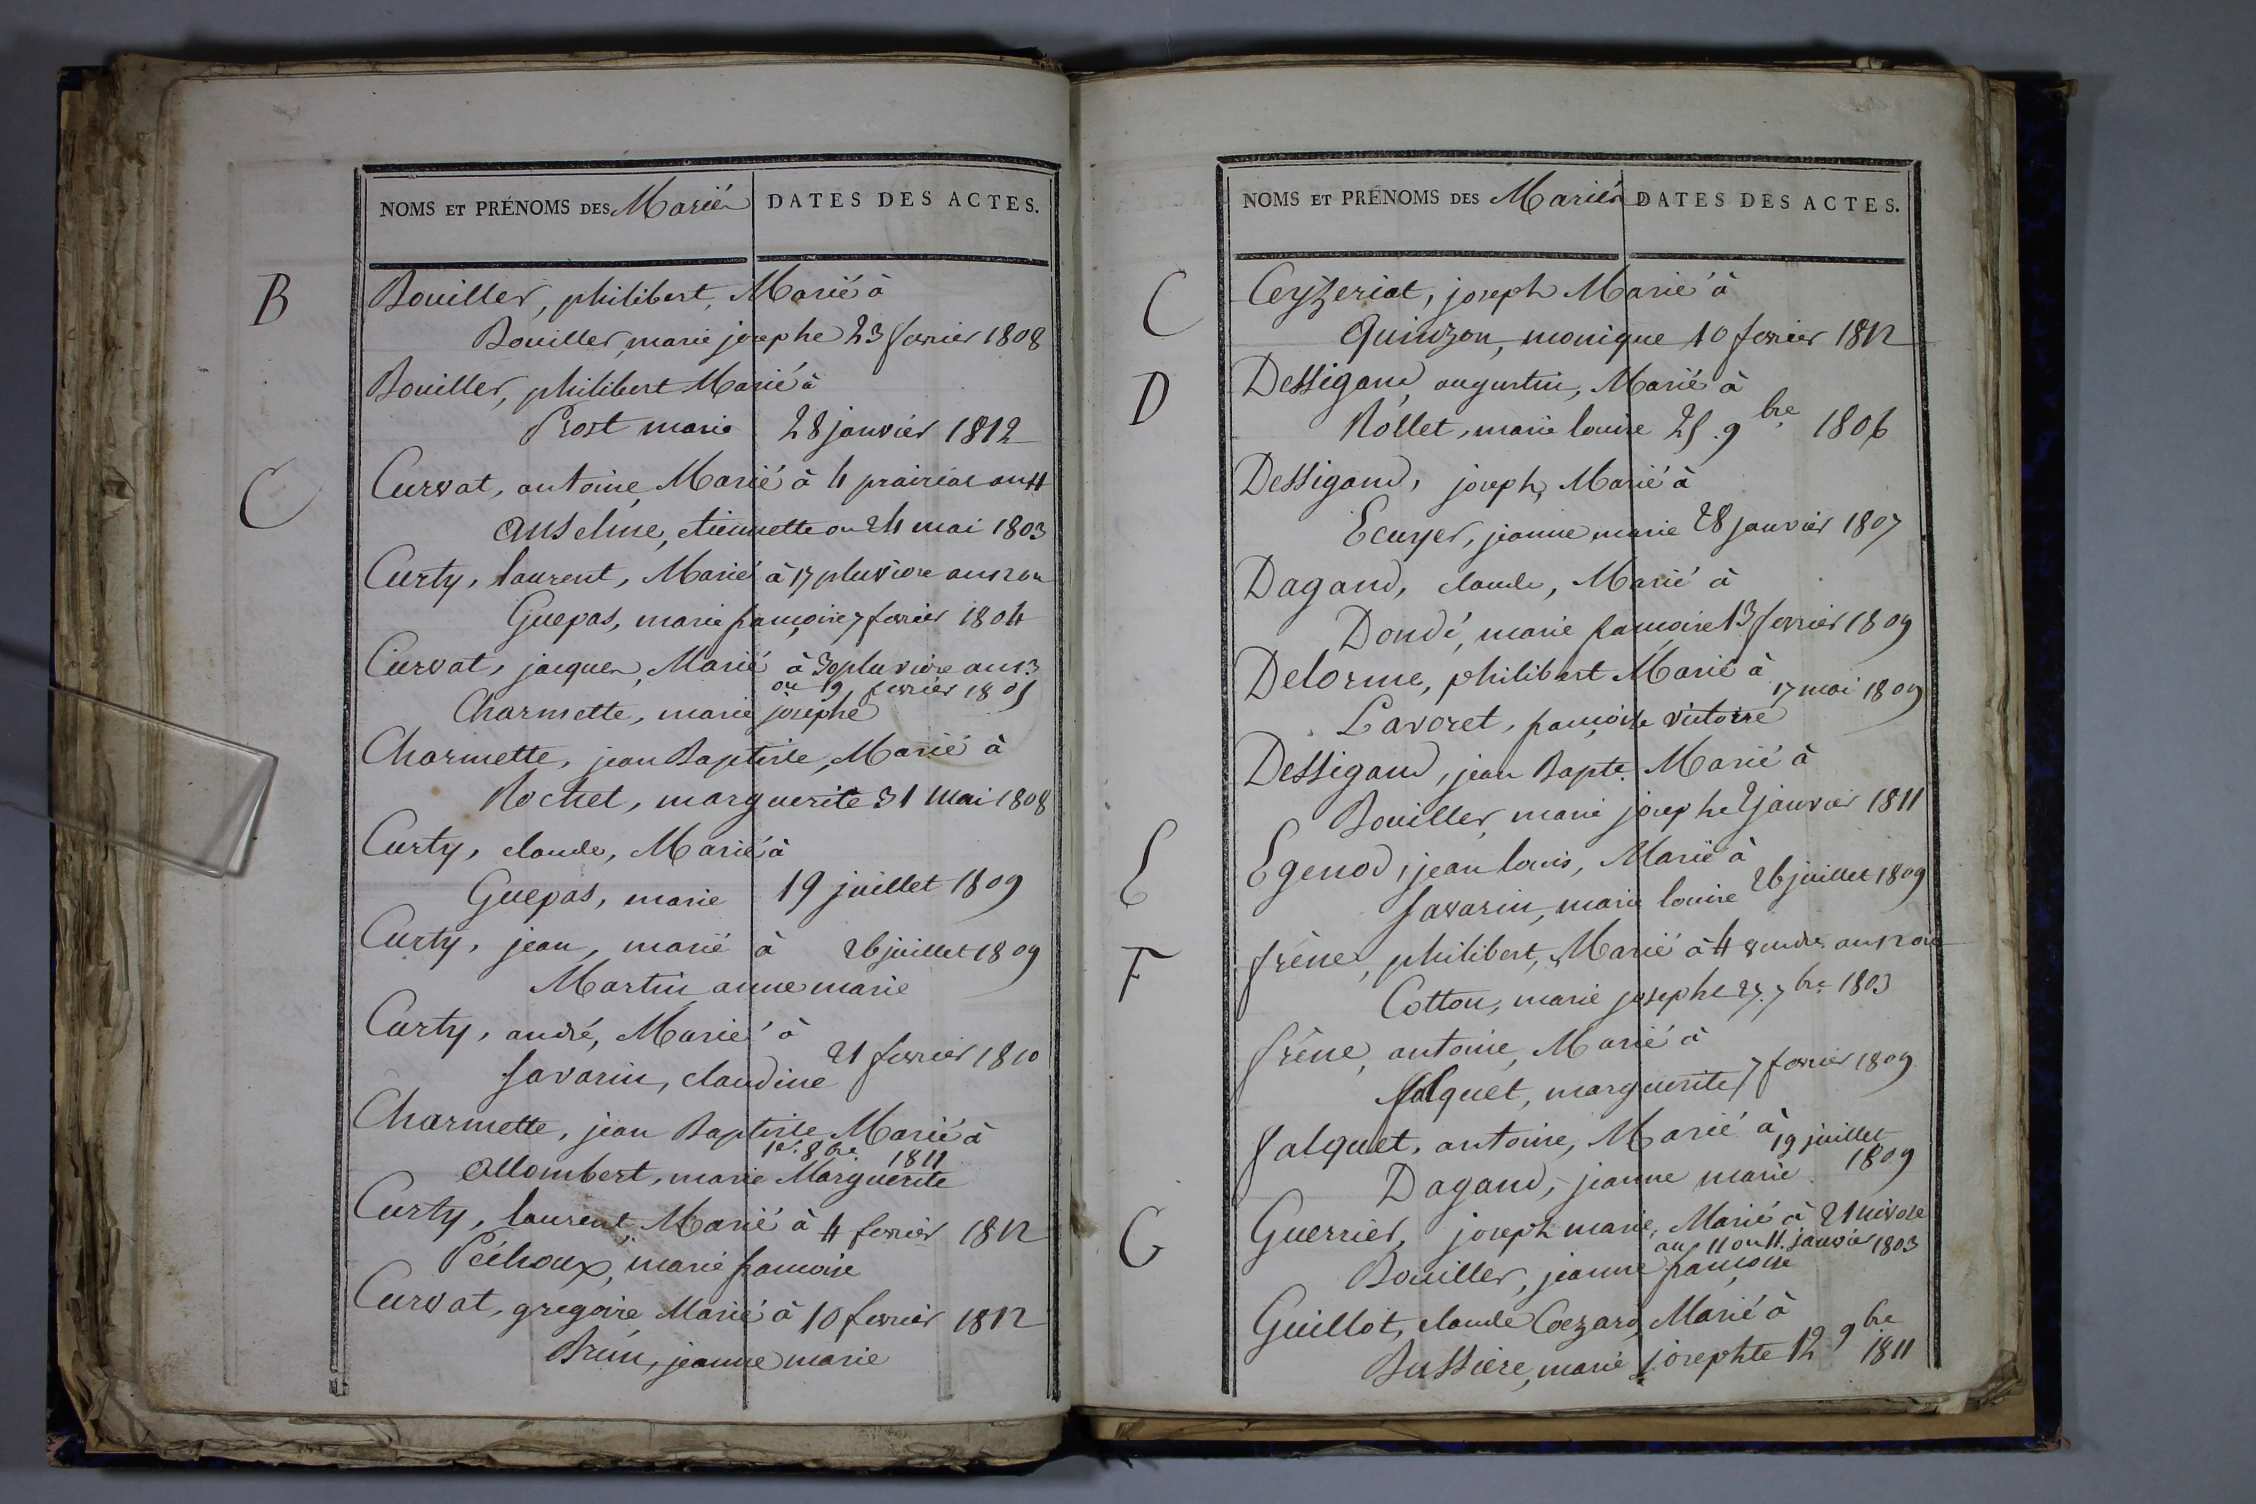 NOMS ET PRÉNOMS DES Mariés DATES DES ACTES.
B
Bouiller, philibert, Marié à
Bouiller, marie josephe 23 fevrier 1808
Bouiller, philibert Marié à
Prost marie 28 janvier 1812
C
Curvat, antoine, Marié à 4 prairial an 11
Anselme, etiennette ou 24 mai 1803
Curty, laurent, Marié à 17 pluviose an 12 ou
Guepas, marie françoise 7 fevrier 1804
Curvat, jacques, Marié à 30 pluviose an 13
ou 19 fevrier 1805
Charmette, marie josephe
Charmette, jean Baptiste, Marié à
Rochet, marguerite 31 mai 1808
Curty, claude, Marié à
Guepas, marie 19 juillet 1809
Curty, jean, marié à 26 juillet 1809
Martin anne marie
Curty, andré, Marié à
Savarin, claudine 21 fevrier 1810
Charmette, jean Baptiste Marié à
1er. 8bre. 1811
Allombert, marie Marguerite
Curty, laurent, Marié à 4 fevrier 1812
Péchoux, marie françoise
Curvat, grégoire, Marié à 10 fevrier 1812
Brun, jeanne marie
NOMS ET PRÉNOMS DES Mariés DATES DES ACTES.
C
Ceyzeriat, joseph Marié à
Quinzon, monique 10 fevrier 1812
D
Dessigaud, augustin, Marié à
Rollet, marie louise 25. 9bre 1806
Dessigaud, joseph, Marié à
Ecuyer, jeanne marie 28 janvier 1807
Dagaud, claude, Marié à
Dondé, marie françoise 13 fevrier 1809
Delorme, philibert Marié à
17 mai 1809
Lavoret, françoise victoire
Dessigaud, jean Bapte. Marié à
Bouiller, marie josephe 2 janvier 1811
E
Egenod, jean louis, Marié à
Savarin, marie louise 26 juillet 1809
F
frêne, philibert, Marié à 4 vendre an 12 ou
Cotton, marie josephe 27. 7bre 1803
frêne, antoine, Marié à
falquet, marguerite 7 fevrier 1809
falquet, antoine, Marié à 19 juillet
1809
Dagaud, jeanne marie
G
Guerrier, joseph marie, Marié à 21 nivose
an 11 ou 11. janvier 1803
Bouiller, jeanne françoise
Guillot, claude Coezard, Marié à
Bussiere, marie josephte 12 9bre
1811